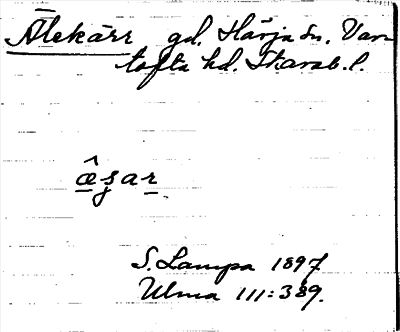 Ålekärr gd. Härja sn. Var-
tofta hd. Skarab. l.
S. Lampa 1897
Ulma 111:389.